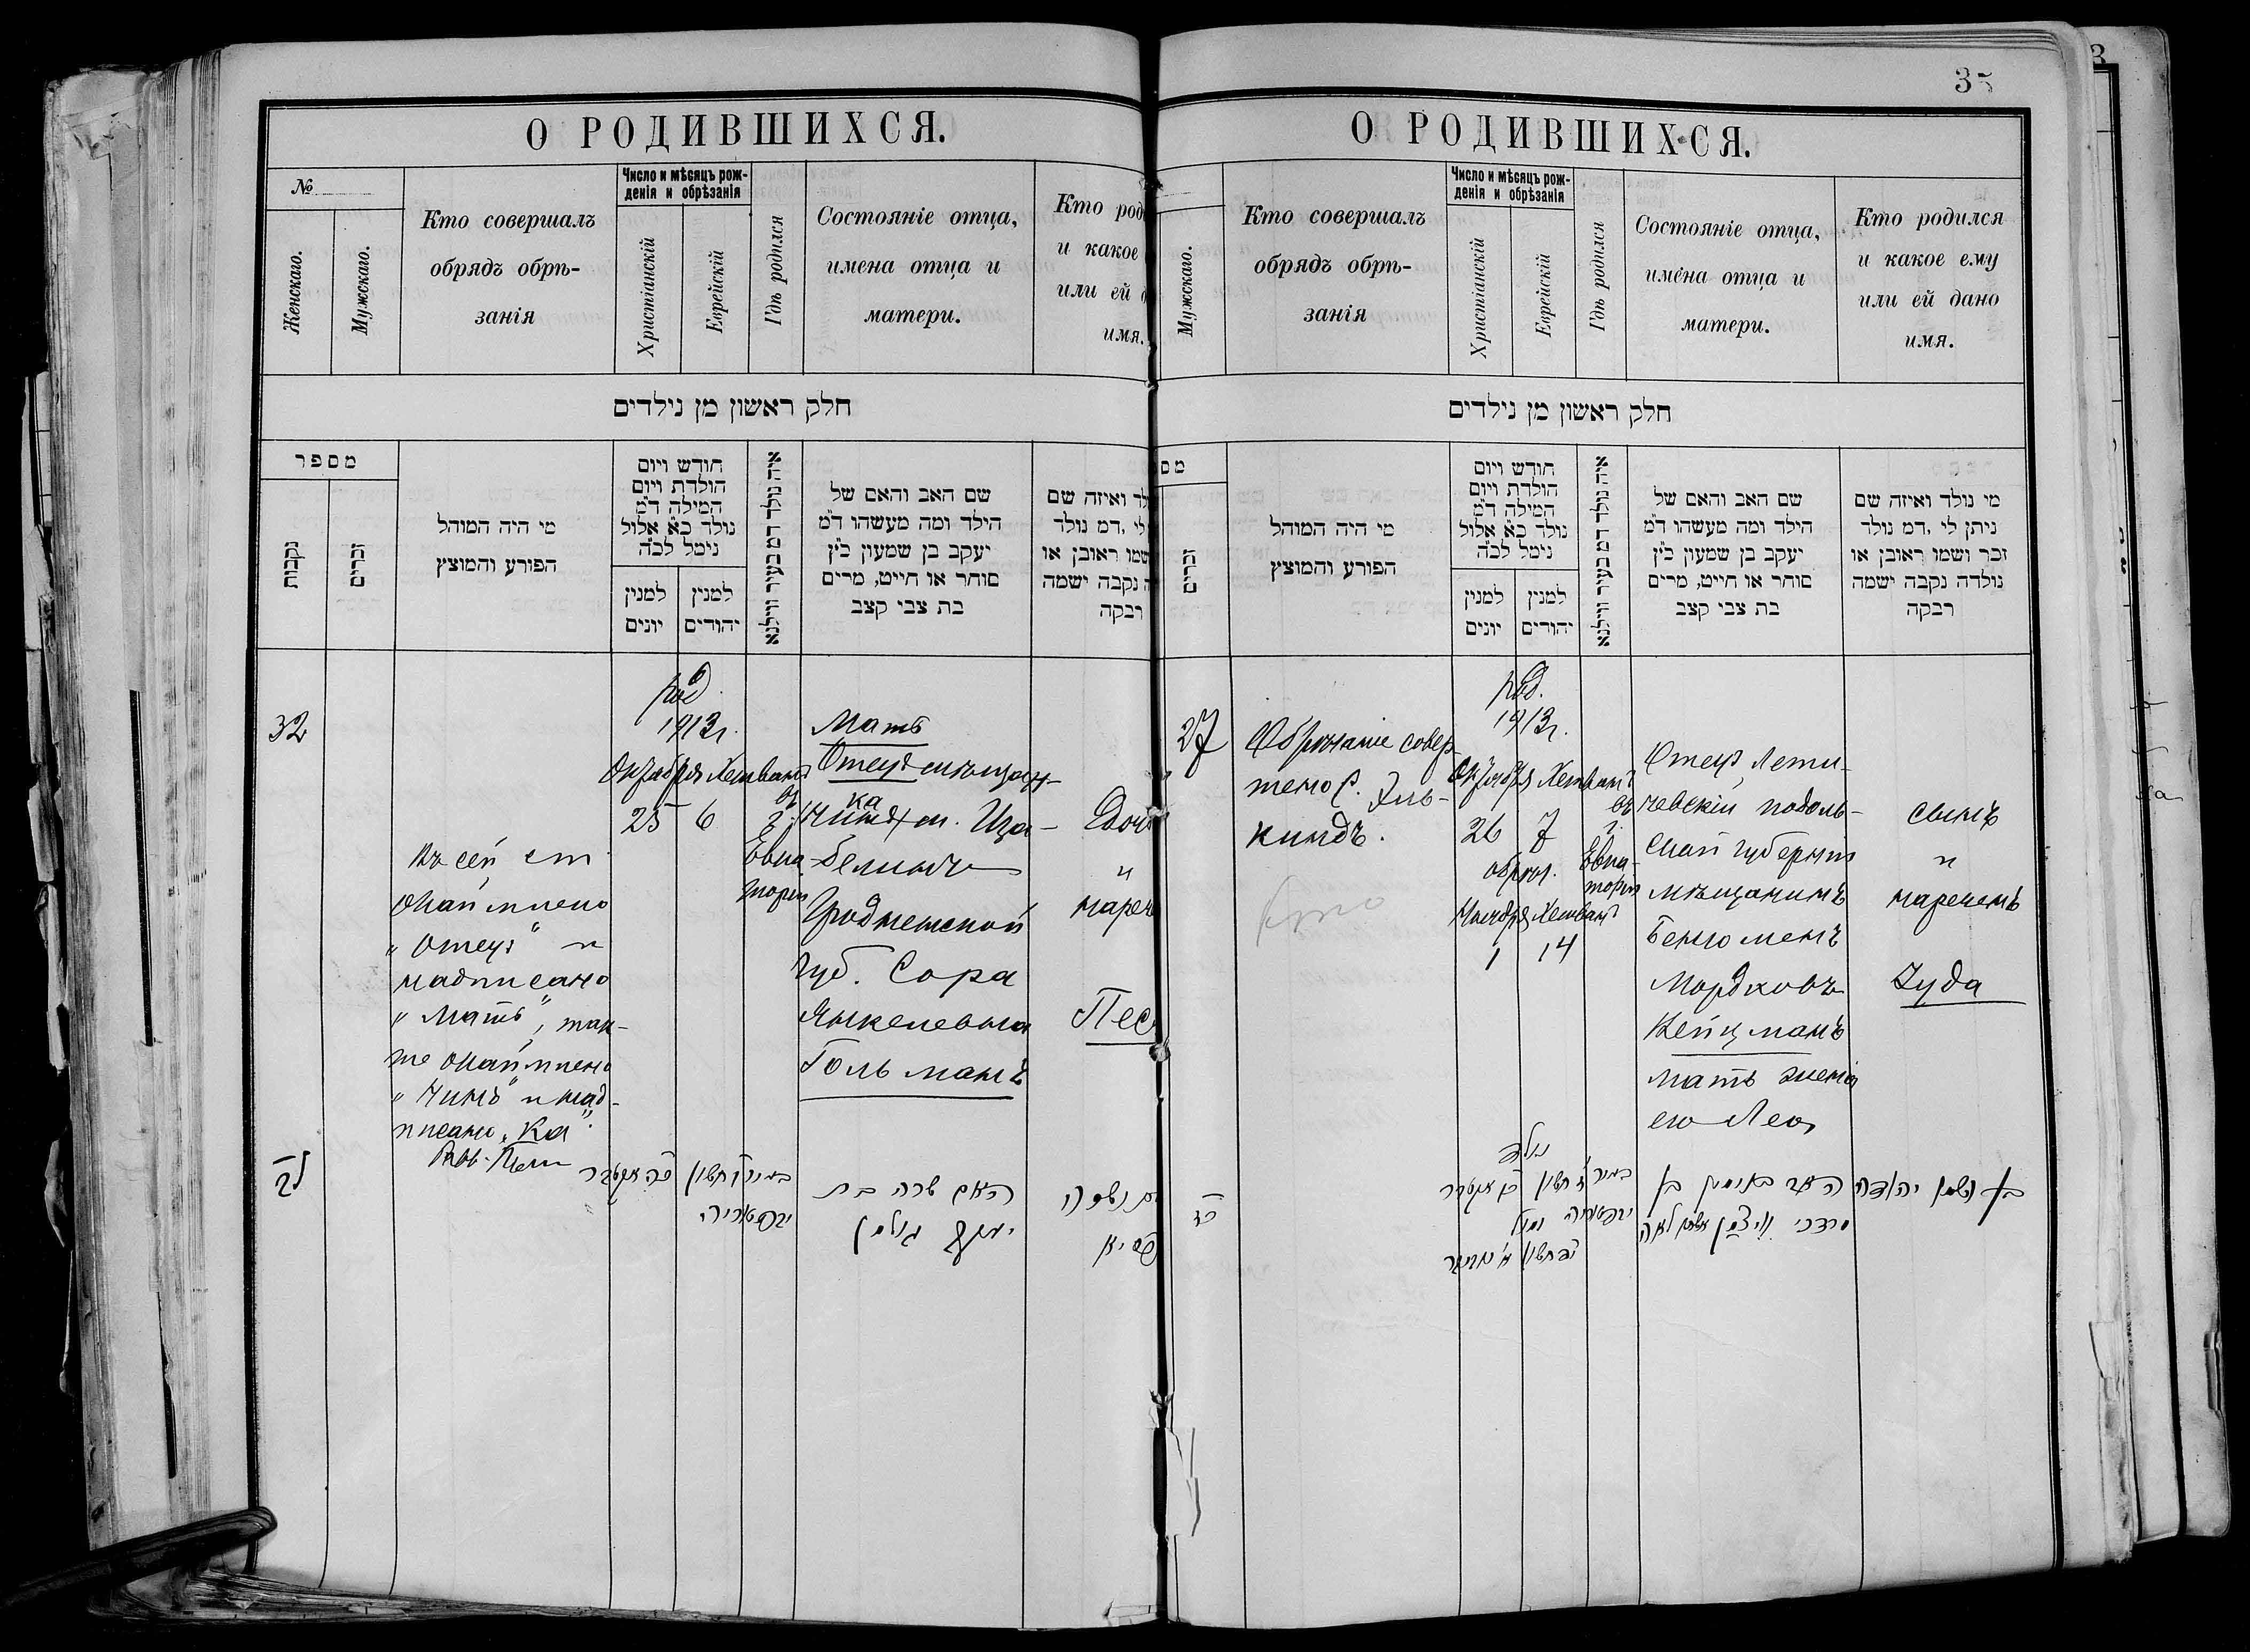 О РОДИВШИХСЯ.
№
Женскаго.
Мужскаго.
Кто совершалъ
обрядъ обрѣ-
занія
Число и мѣсяцъ рож-
денія и обрѣзанія
Христіанскій
Еврейскій
Гдѣ родился
Состояніе отца,
имена отца и
матери.
Кто род
и какое
или ей
имя.
חלק ראשון מן נילדים
מספר
נקבות
זכרים
מי היה המוהל
הפורע והמוצץ
חודש ויום
הולדת ויום
המילה ד״מ
נולד כ״א אלול
נימל לכ״ה
למנין
יונים
למנין
יהודים
איה נולד דמ בעיר ווילנא
שם האב והאם של
הילד ומה מעשהו ד״מ
יעקב בן שמעון כ״ץ
סוחר או חייט, מרים
בת צבי קצב
לד ואיזה שם
לי ,דמ נולד
שמו ראובן או
נקבה ישמה
רבקה
32
Въ сей ст
окаймлено
„Отецъ" и
надписано
„Мать", так-
же окаймлено
„Чинъ" и над-
писано „Ка".
род.
1913г.
Октября Хешванъ
25 6
въ
г.
Евпа-
торіи
Мать
Отецъ мѣщан-
ка
м. Иза-
белинъ
Гродненской
губ. Сора
Янкелевна
Гольманъ
Дочь
и
нареч
Пес
לב
האם שרה בת
יעקב גולמן
35
О РОДИВШИХСЯ.
Мужскаго.
Кто совершалъ
обрядъ обрѣ-
занія
Число и мѣсяцъ рож-
денія и обрѣзанія
Христіанскій
Еврейскій
Гдѣ родился
Состояніе отца,
имена отца и
матери.
Кто родился
и какое ему
или ей дано
имя.
חלק ראשון מן נילדים
מס
זכרים
מי היה המוהל
הפורע והמוצץ
חודש ויום
הולדת ויום
המילה ד״מ
נולד כ״א אלול
נימל לכ״ה
למנין
יונים
למנין
יהודים
איה נולד דמ בעיר ווילנא
שם האב והאם של
הילד ומה מעשהו ד״מ
יעקב בן שמעון כ״ץ
סוחר או חייט, מרים
בת צבי קצב
מי נולד ואיזה שם
ניתן לי ,דמ נולד
זכר ושמו ראובן או
נולדה נקבה ישמה
רבקה
27
Обрѣзаніе совер-
шено Р. Эль-
киндъ.
род.
1913г.
Октября Хешванъ
26 7
обрѣз.
Ноября Хешванъ
1 14
въ
г.
Евпа-
торіи
Отецъ Лети-
чевскій Подоль-
ской губерніи
мѣщанинъ
Беньоменъ
Мордковъ
Вейцманъ
мать жена
его Лея
сынъ
и
нареченъ
Іуда
כז
נולד
בן ושמו יהודה
האב בנימין בן
מרדכי ווייצמן אשתו לאה